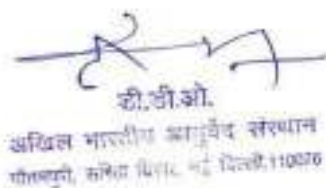 डी.डी.ओ.
अखिल भारतीय आयुर्वेद संस्थान
गौतमपुरी, सरिता विहार, नई दिल्ली, 110076